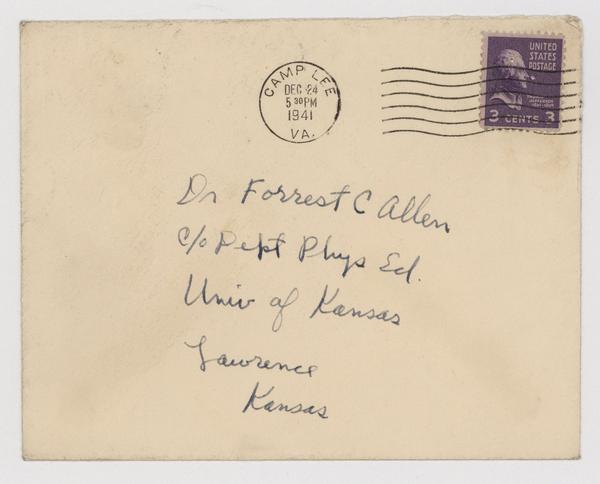 CAMP LEE
DEC 24
5 30 PM
1941
VA.
UNITED
STATES
POSTAGE
3 CENTS 3
Dr Forrest C Allen
c/o Dept Phys Ed.
Univ of Kansas
Lawrence
Kansas